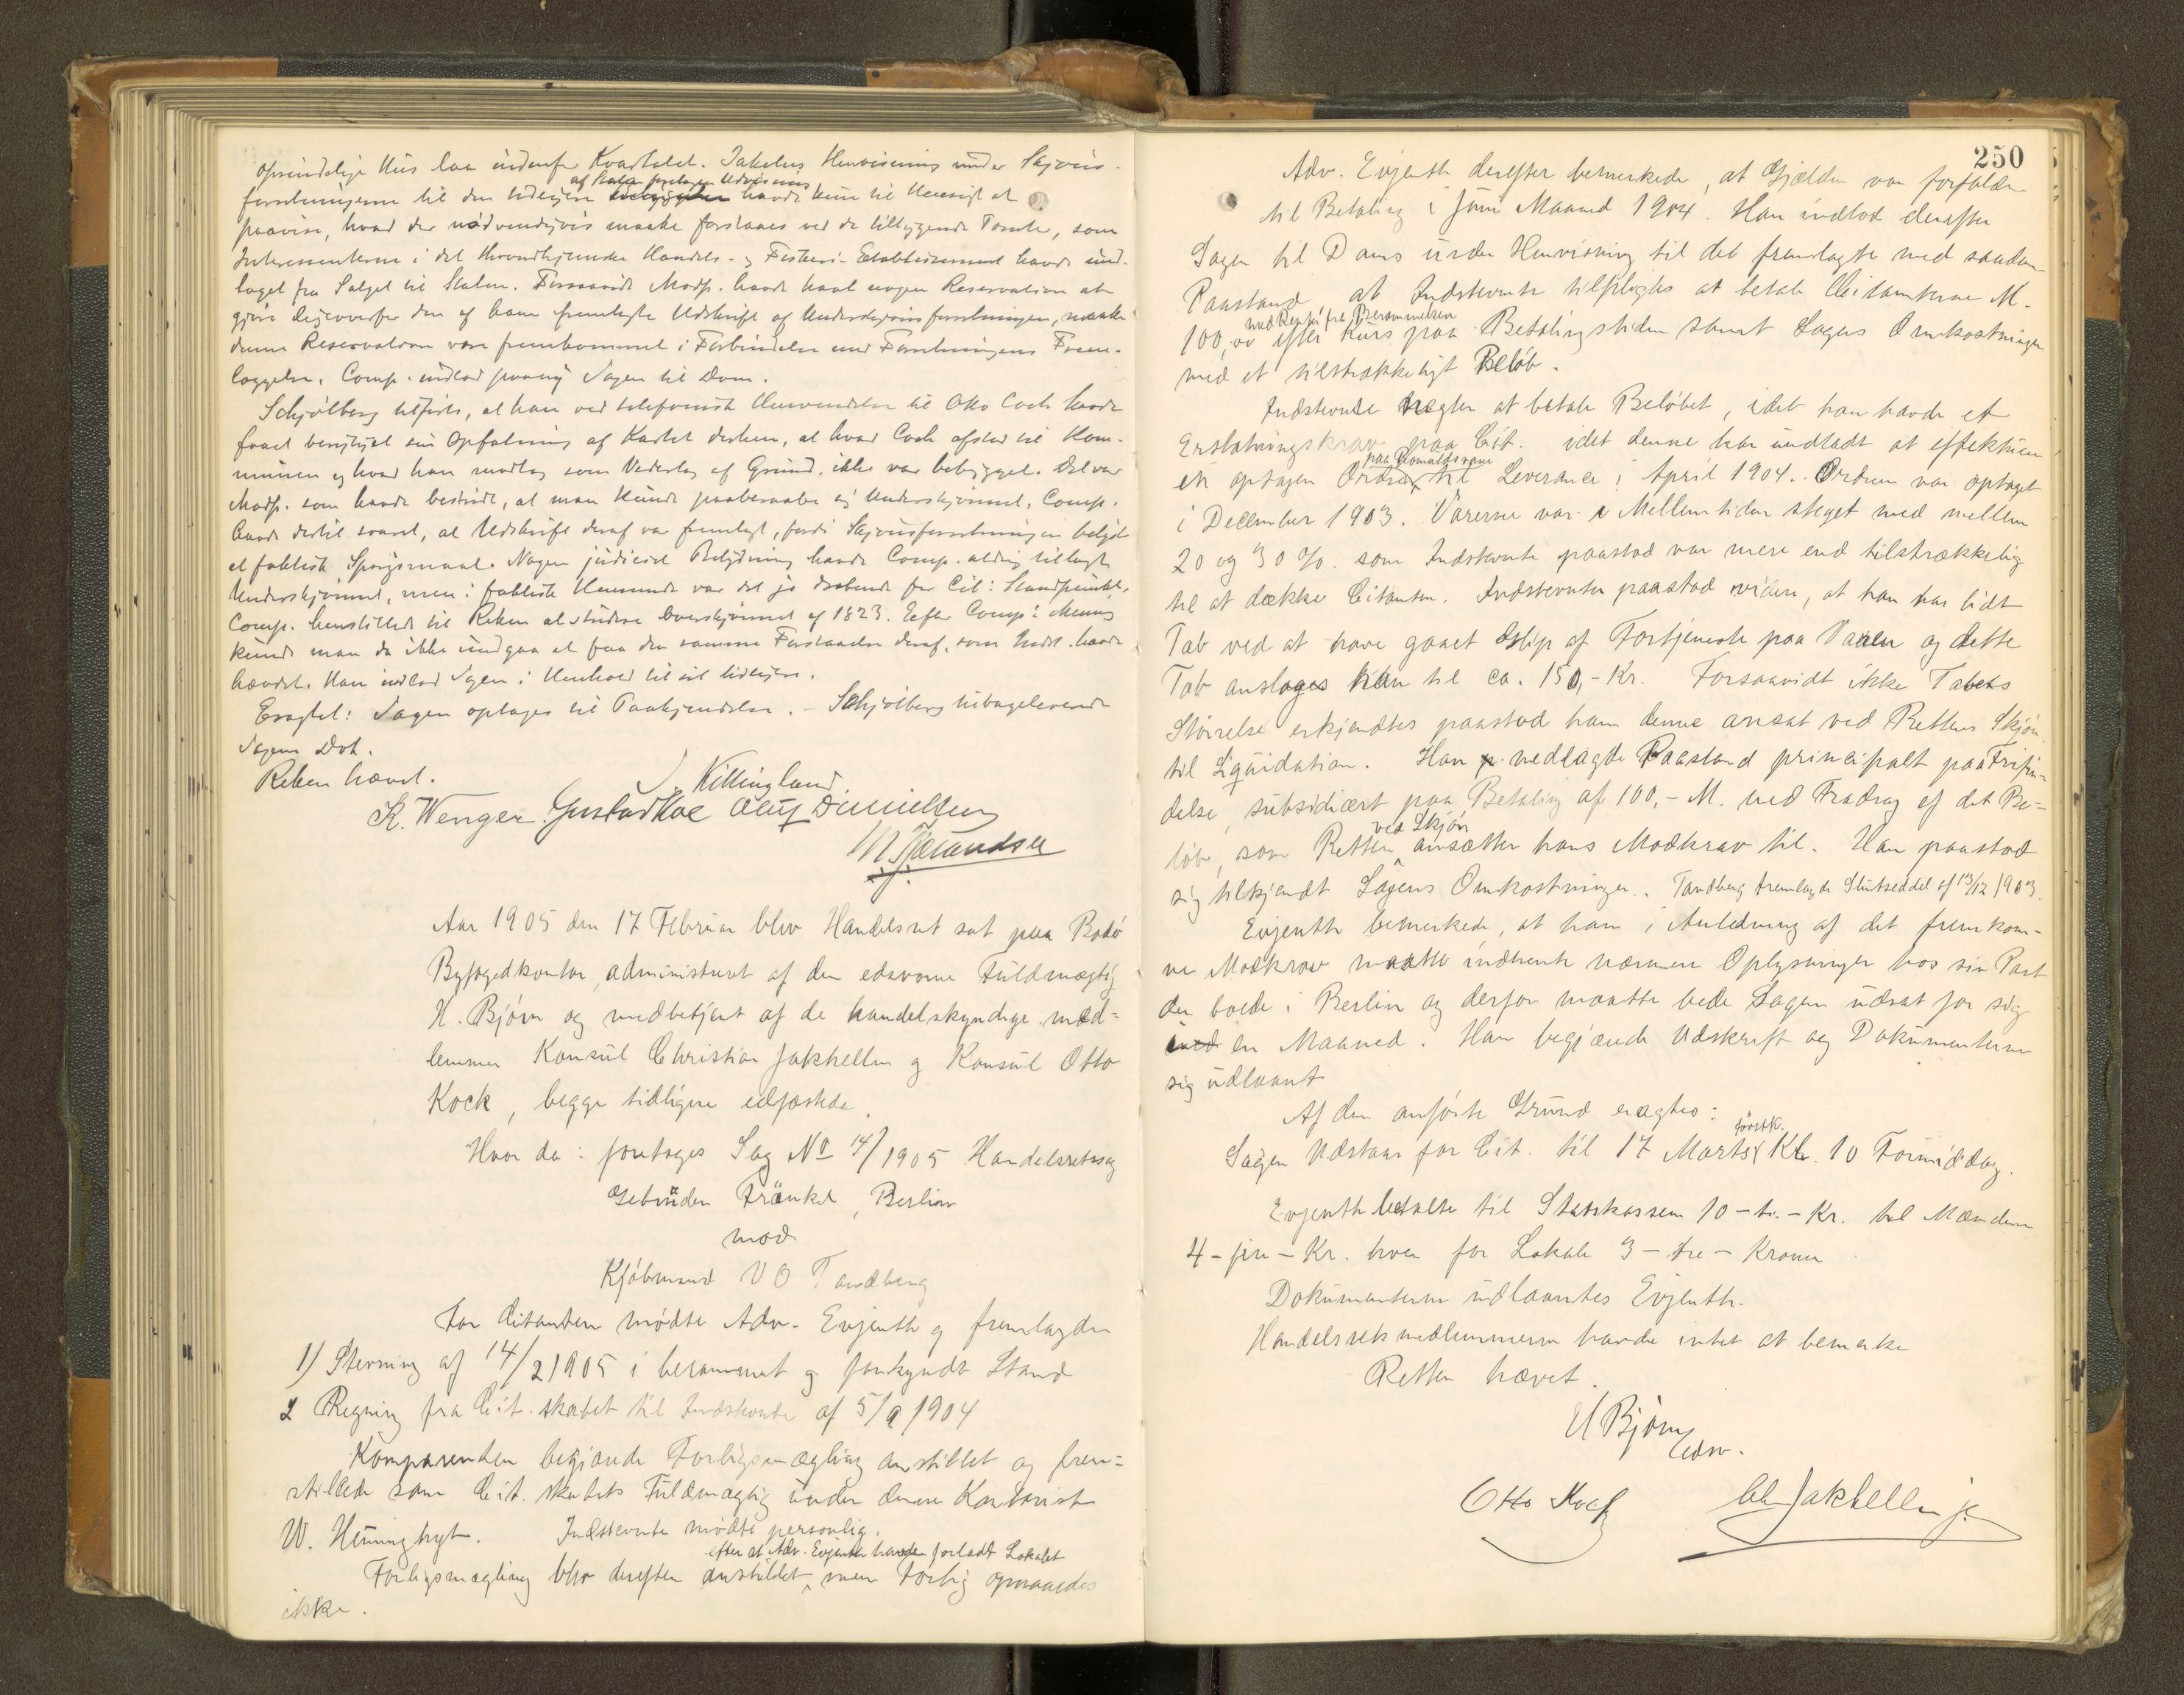 oprindelige Hus laa indenfor Kvartalet. Takstens Henvisning under Skjøns-
forretningerne til den tidligere af Staten foretagne Udvisning havde kun til Hensigt at
paavise, hvad der nødvendigvis maatte forstaaes ved de tilliggende Tomter, som
Interessenterne i det throndhjemske Handels- og Fiskeri-Etablissement havde und-
taget fra Salget til Staten. Forsaavidt Modp. havde havt nogen Reservation at
gjøre ligeoverfor den af ham fremlagte Udskrift af Underskjønsforretningen, maatte
denne Reservation være fremkommet i Forbindelse med Forretningens Frem-
læggelse. Comp. indlod paany Sagen til Dom.
Schjølberg tilføiede, at han ved telefonisk Henvendelse til Otto Koch havde
faaet bekræftet sin Opfatning af Kartet derhen, at hvad Coch afstod til Kom-
munen og hvad han modtog som Vederlag af Grund, ikke var bebygget. Det var
Modp. som havde bestridt, at man kunde paaberaabe sig Underskjønnet. Comp.
havde dertil svaret, at Udskrift deraf var fremlagt, fordi Skjønsforretningen belyste
et faktisk Spørgsmaal. Nogen judiciel Betydning havde Comp. aldrig tillagt
Underskjønnet, men i faktisk Henseende var det jo dræbende for Cit: Standpunkt.
Comp. henstillede til Retten at studere Overskjønnet af 1823. Efter Comp: Mening
kunde man da ikke undgaa at faa den samme Forstaaelse deraf, som Indst. havde
hævdet. Han indlod Sagen i Henhold til sit tidligere.
Eragtet: Sagen optages til Paakjendelse. – Schjølberg tilbageleverede
Sagens Dok.
Retten hævet.
J. Killingland
K. Wenger Gustav Moe Oluf Danielsen
M. Ørlandsen
Aar 1905 den 17 Februar blev Handelsret sat paa Bodø
Byfogedkontor, administreret af den edsvorne Fuldmægtig
H. Bjørn og medbetjent af de handelskyndige med=
lemmer Konsul Christian Jakhelln og Konsul Otto
Kock, begge tidligere edfæstede.
Hvor da: foretoges Sag No 14/1905 Handelsretssag
Gebrüder Fränkel, Berlin
mod
Kjøbmand V O Tandberg
For Citanten mødte Adv. Evjenth og fremlagde
1) Stevning af 14/2 1905 i berammet og forkyndt Stand
2 Regning fra Cit. skabet til Indstevnte af 5/9 1904
Komparenten begjærede Forligsmægling anstillet og frem=
stillede som Cit. skabets Fuldmægtig under denne Kontorist
W. Hunnighut. Indstevnte mødte personlig.
efter at Adv. Evjenth havde forladt Lokalet
Forligsmægling blev derefter anstillet, men Forlig opnaaedes
ikke.
250
Adv. Evjenth derefter bemerkede, at Gjælden var forfalden
til Betaling i Juni Maaned 1904. Han indlod derefter
Sagen til Doms under Henvisning til det fremlagte med saadan
Paastand, at Indstevnte tilpligtes at betale Citanterne M.
med Renter fra Berammelsen
100,00 efter Kurs paa Betalingstiden samt Sagens Omkostninger
med et tilstrækkeligt Beløb.
Indstevnte nægter at betale Beløbet, idet han havde et
Erstatningskrav paa Cit. idet denne har undladt at effektuere
en optagen Ordre til Leverance i April 1904. Ordren var optaget
i December 1903. Varerne var i Mellemtiden steget med mellem
20 og 30 %. som Indstevnte paastod var mere end tilstrækkelig
til at dække Citanten. Indstevnte paastod videre, at han har lidt
Tab ved at have gaaet Glip af Fortjeneste paa Varen og dette
Tab ansloges han til ca. 150,- Kr. Forsaavidt ikke Tabets
Størrelse erkjendtes paastod ham denne ansat ved Rettens Skjøn
til Liquidation. Han nedlagde Paastand principalt paa Frifin=
delse, subsidiært paa Betaling af 100,- M. med Fradrag af det Be=
ved Skjøn
løb, som Retten ansætter hans Modkrav til. Han paastod
sig tilkjendt Sagens Omkostninger. Tandberg fremlagde Slutseddel af 13/12 1903
Evjenth bemerkede, at han i Anledning af det fremkom-
ne Modkrav maatte indhente nærmere Oplysninger hos sin Part
der boede i Berlin og derfor maatte bede Sagen udsat for sig
en Maaned. Han begjærede Udskrift og Dokumenterne
sig udlaant
Af den anførte Grund eragtes:
førstk.
Sagen Udstaar for Cit. til 17 Marts Kl. 10 Formiddag.
Evjenth betalte til Statskassen 10 – ti. – Kr. til Mændene
4 – fire – Kr. hver for Lokale 3 – tre – Kroner
Dokumenterne udlaantes Evjenth.
Handelsretsmedlemmerne havde intet at bemerke
Retten hævet.
H Bjørn
Edsv.
Otto Koch Chr Jakhelln jr